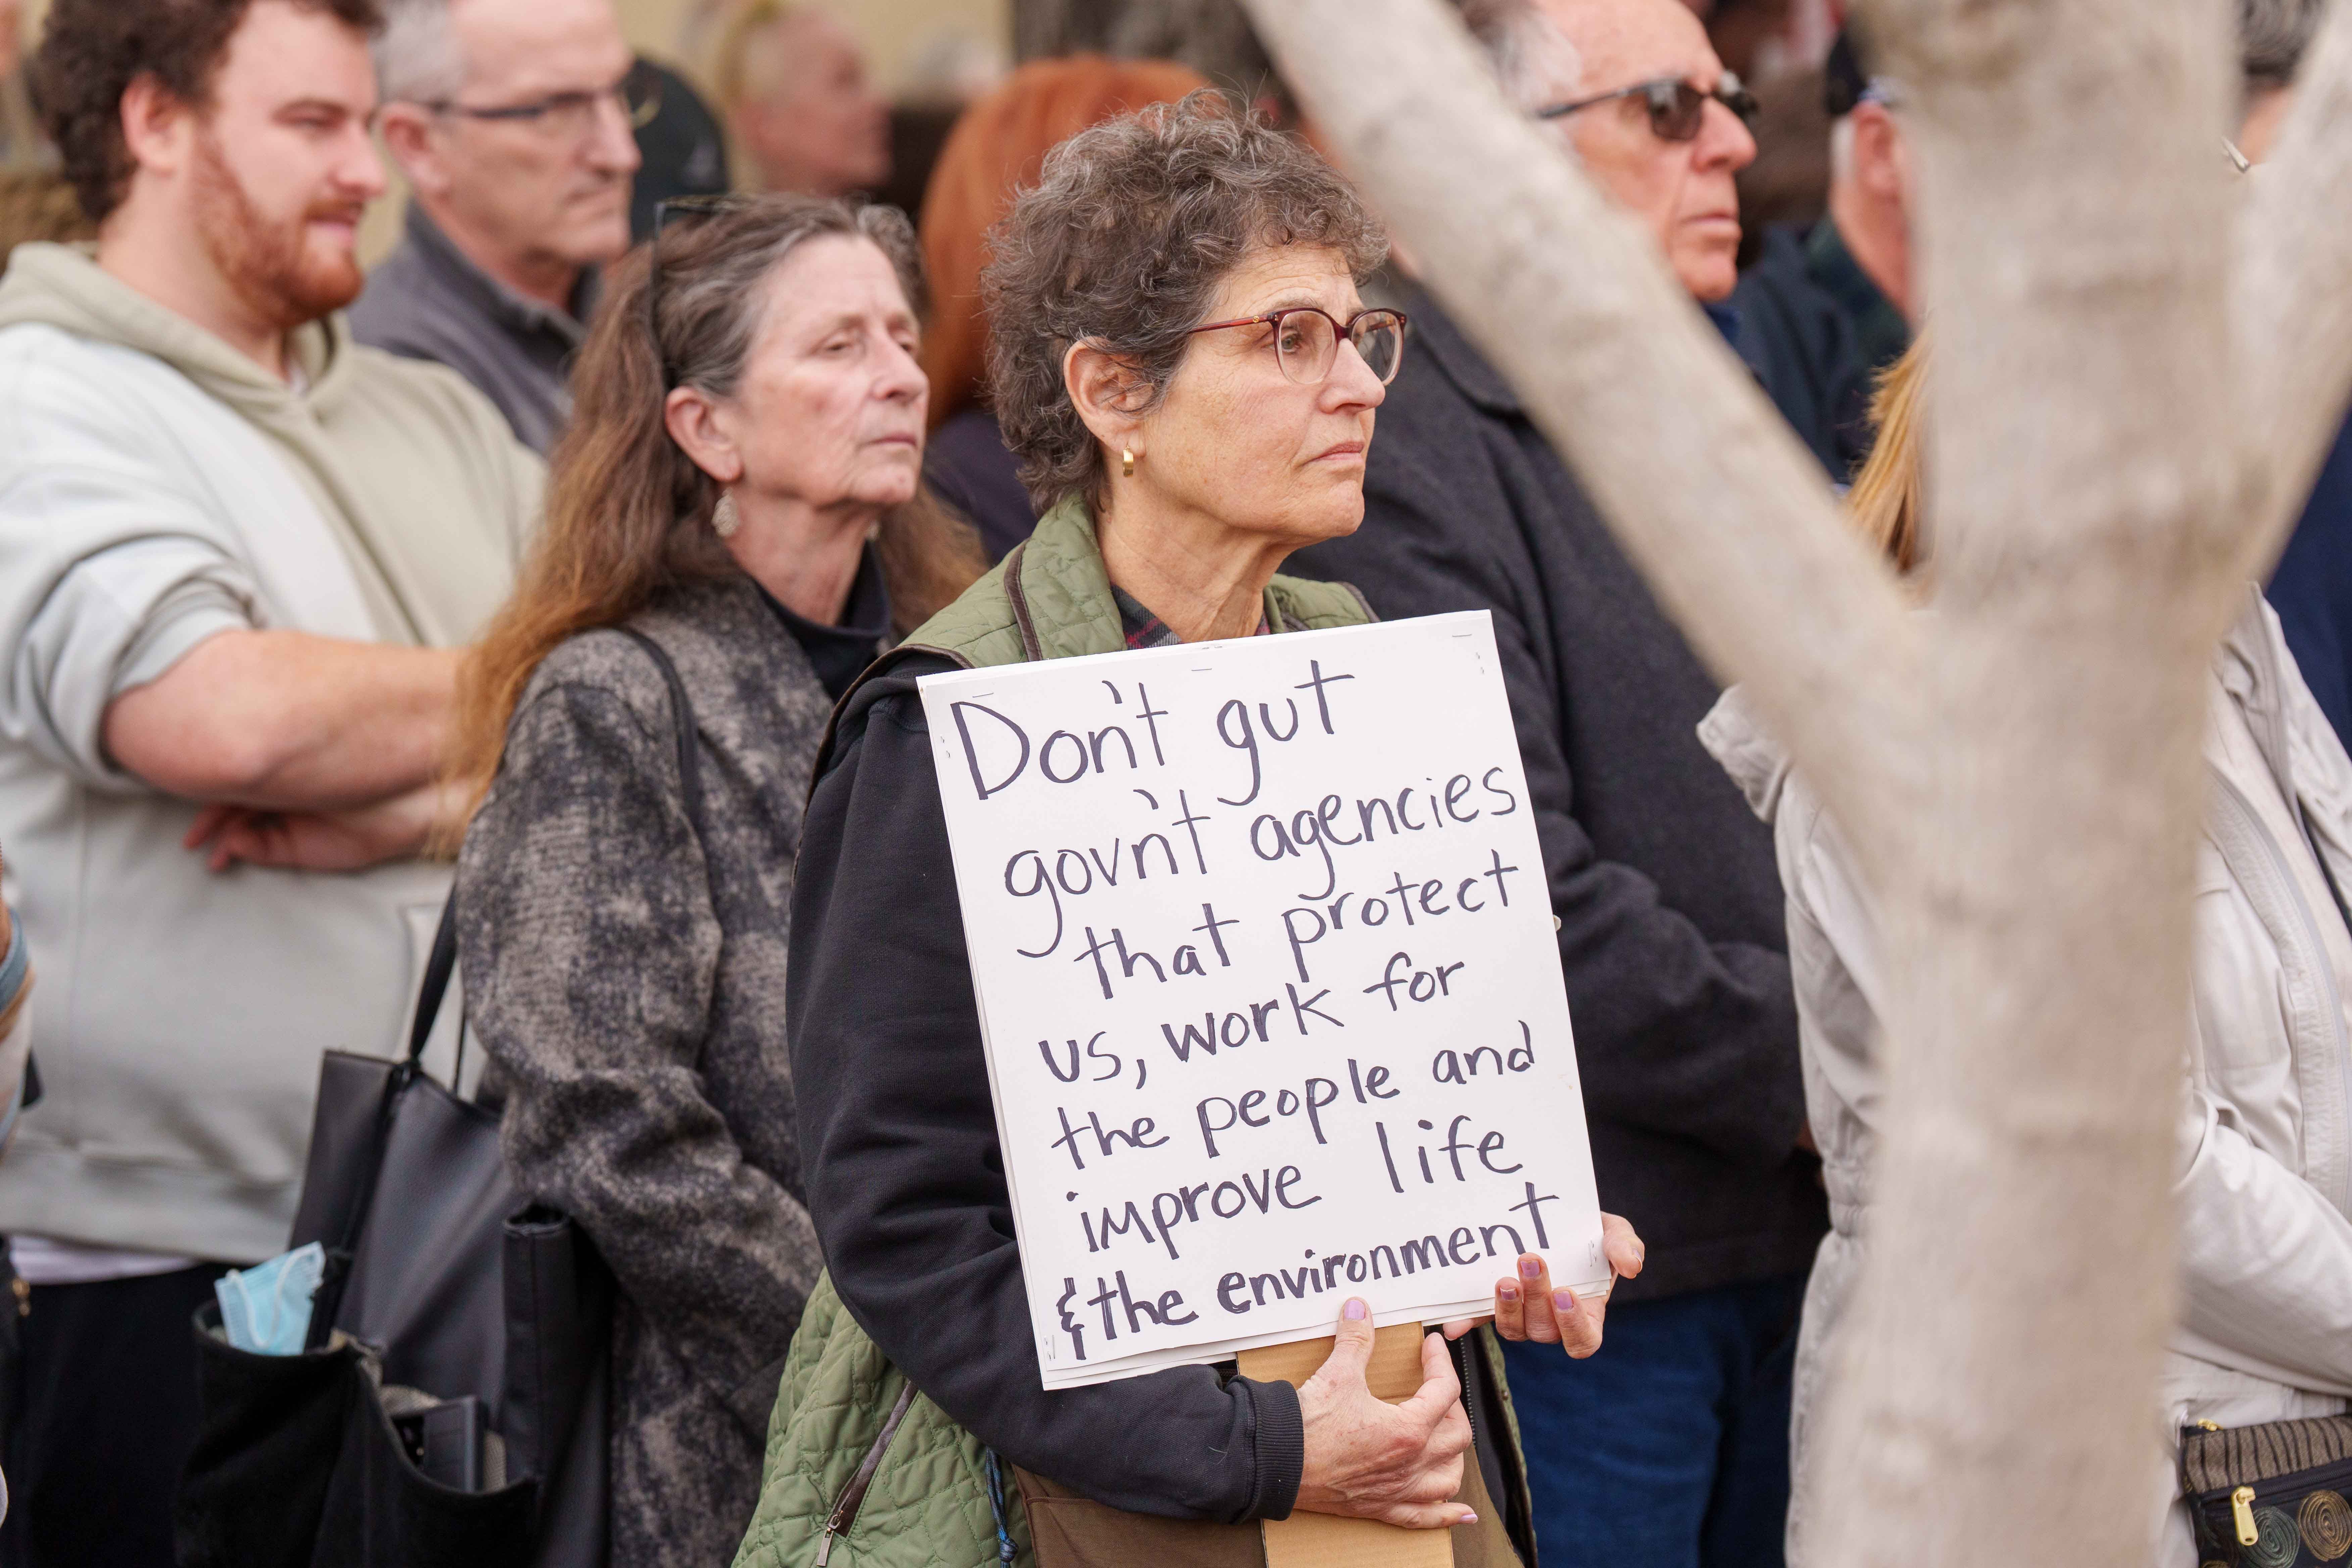 Don't gut
govn't agencies
that protect
us, work for
the people and
improve life
& the environment